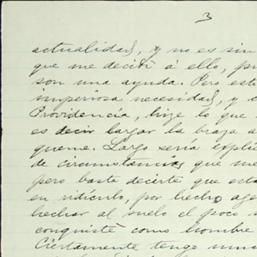 3
actualidad, y no es sin
que me decití á ello, pu
son una ayuda. Pero est
imperiosa necesidad, y c
Providencia, hize lo que
es decir largar la braza a
queme. Largo seria explic
de circunstancias que me
pero baste decirte que esta
en ridículo, por hecho age
hechar al suelo el poco
conquisté como hombre
Ciertamente tengo